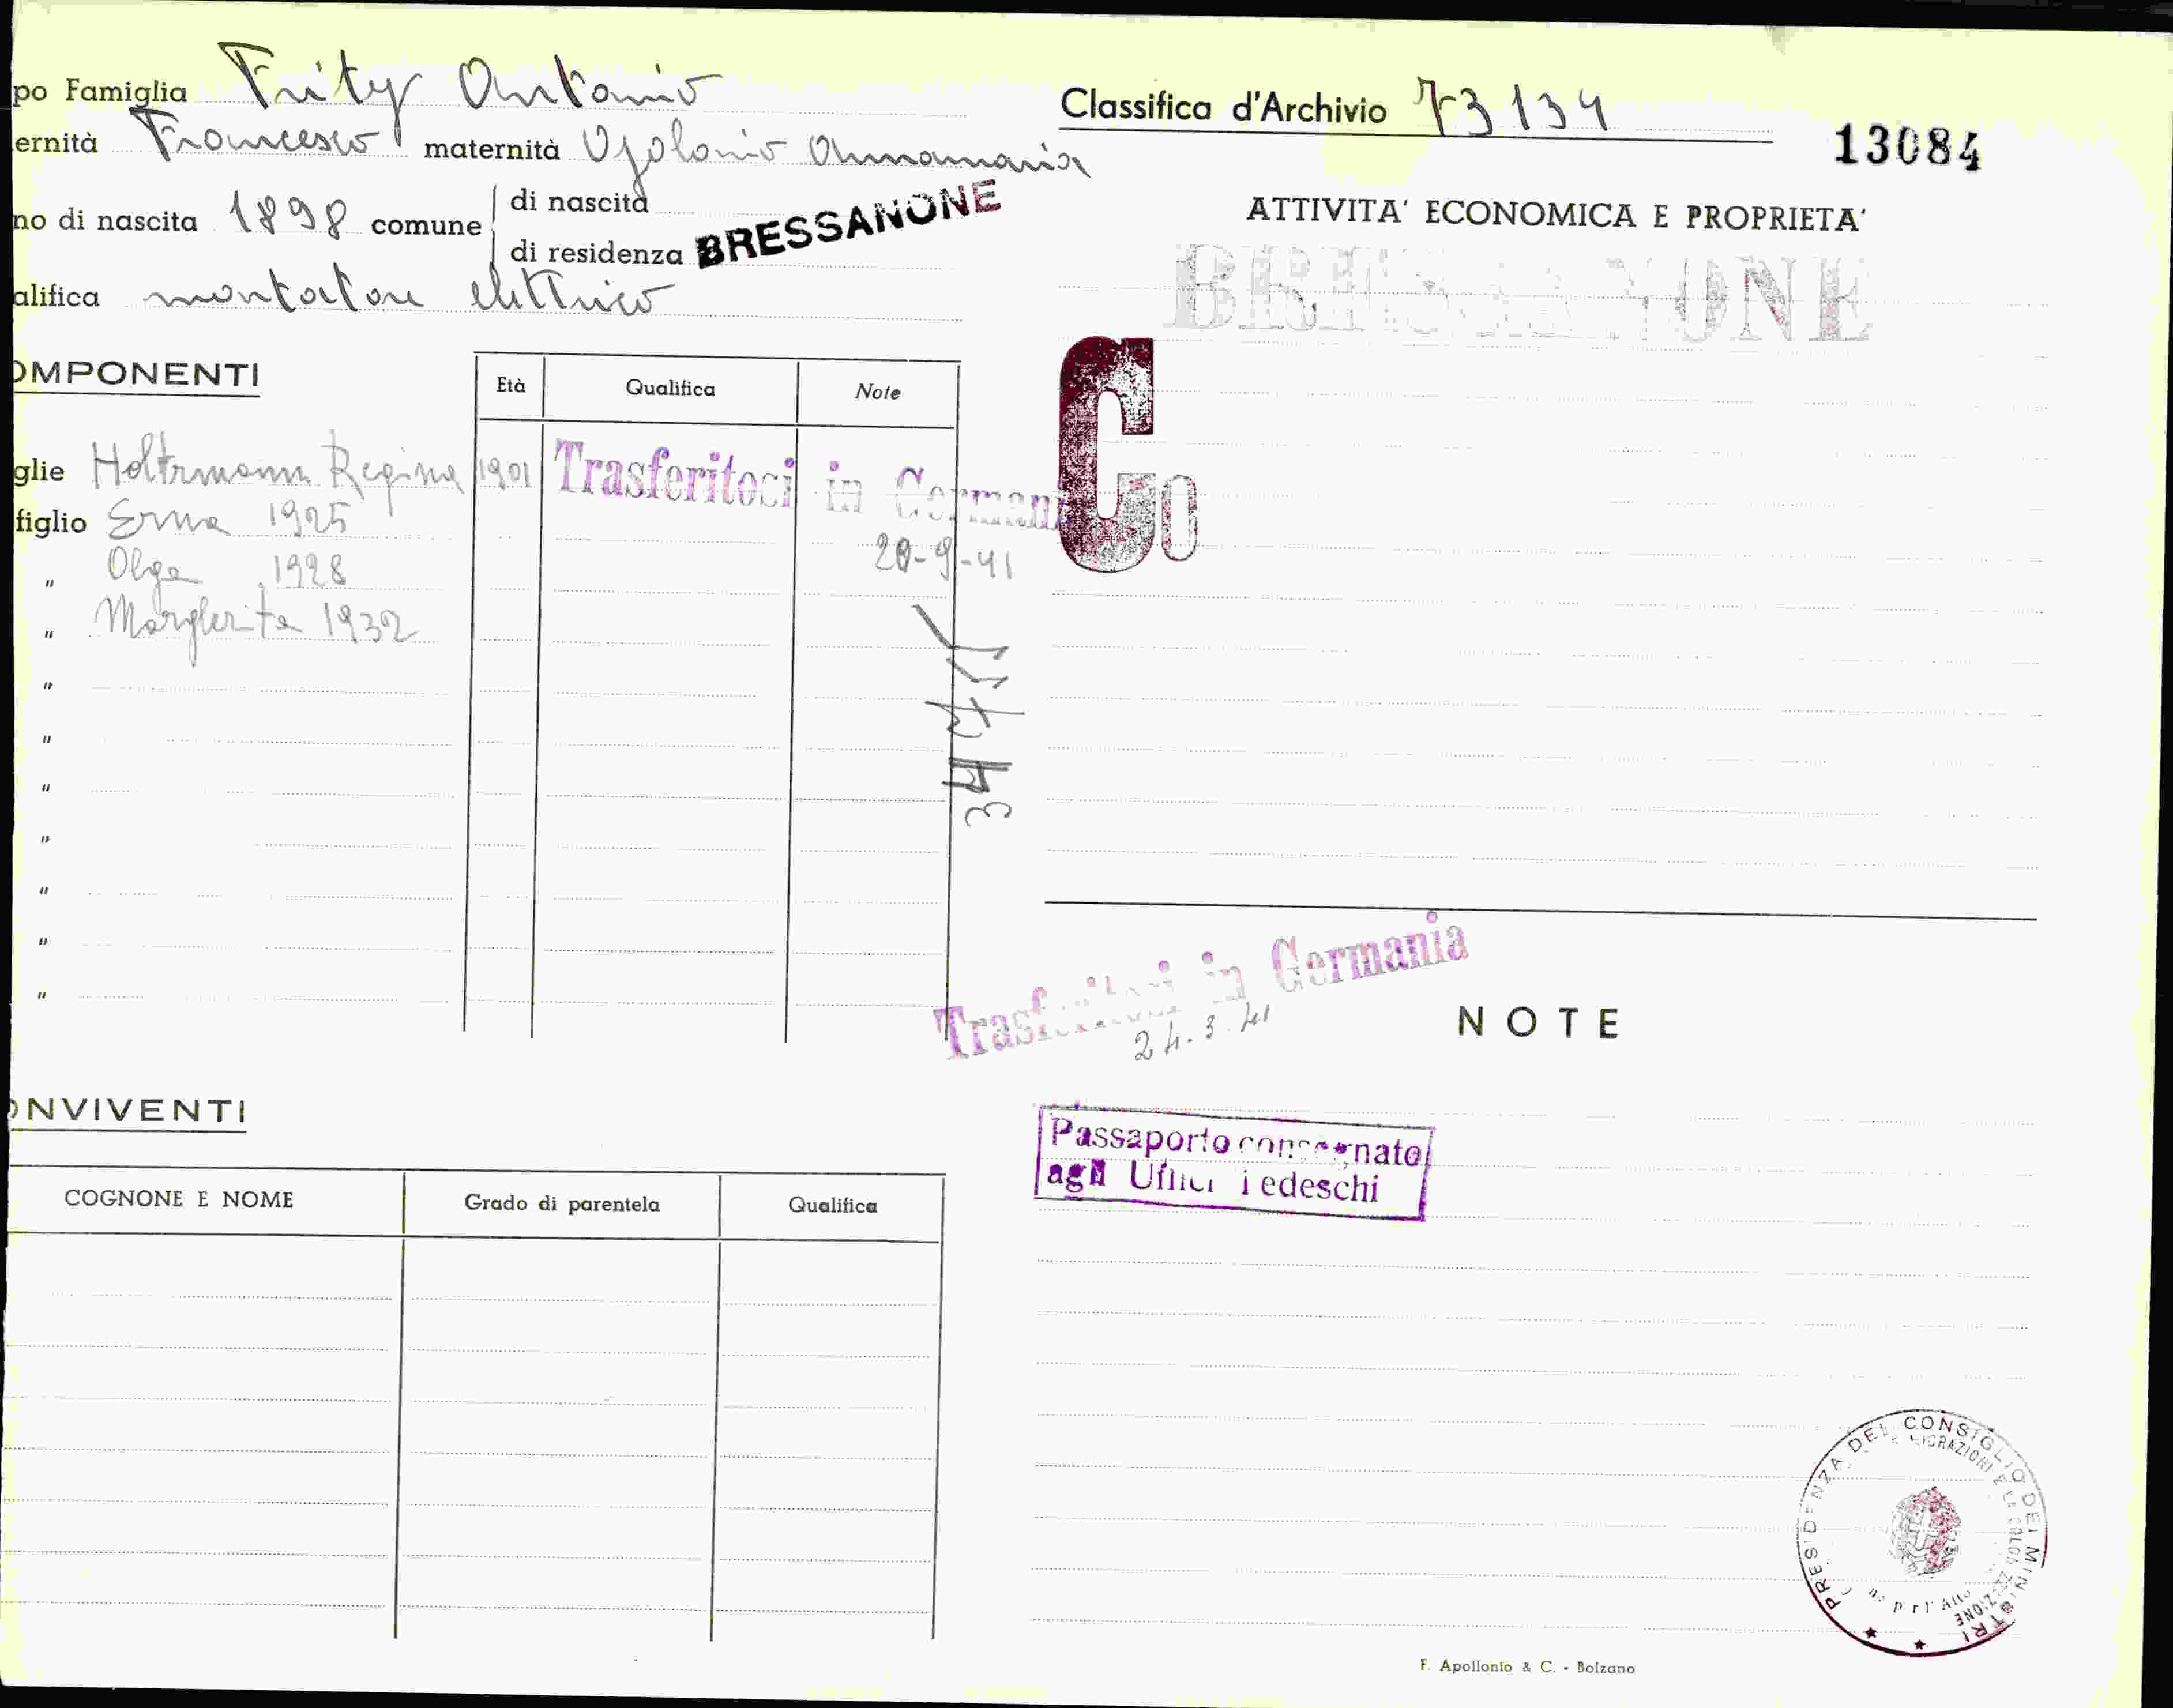 po Famiglia Frity Antonio
ernità Francesco maternità Ugolonio Annamaria
no di nascita 1898 comune di nascita
di residenza BRESSANONE
alifica montatore elettrico
OMPONENTI
Età Qualifica Note
glie Holtzmann Regina 1901 Trasferitoci in Germani
figlio Erna 1925
20-9-41
" Olga 1928
" Margherita 1932
"
"
"
"
"
"
"
ONVIVENTI
COGNONE E NOME Grado di parentela Qualifica
Classifica d'Archivio 73134
13084
ATTIVITA' ECONOMICA E PROPRIETA'
BRESSANONE
Co
Trasferitoci in Germania
24.3.41
NOTE
Passaporto consegnato
agli Uffici Tedeschi
PRESIDENZA DEL CONSIGLIO DEI MINISTRI
F. Apollonio & C. - Bolzano